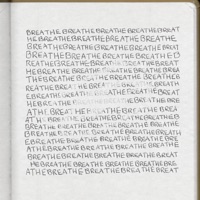 BREATHE BREATHE BREATHE BREATHE BREAT
HE BREATHE BREATHE BREATHE BREATHE
BREATHE BREATHE BREATHE BREATHE BREAT
HE BREATHE BREATHE BREATHE BREATHE B
REATHE BREATHE BREATHE BREATHE BREAT
HE BREATHE BREATHE BREATHE BREATHE BREA
THE BREATHE BREATHE BREATHE BREATHE B
REATHE BREATHE BREATHE BREATHE BREATH
E BREATHE BREATHE BREATHE BREATHE BREAT
HE BREATHE BREATHE BREATHE BRE
ATHE BREATHE BREATHE BREATHE BREA
THE BREATHE BREATHE BREATHE BREATHE
BREATHE BREATHE BREATHE BREATHE BREATH
E BREATHE BREATHE BREATHE BREATHE BRE
ATHE BREATHE BREATHE BREATHE BREATHE
BREATHE BREATHE BREATHE BREATHE BREAT
HE BREATHE BREATHE BREATHE BREATHE BRE
ATHE BREATHE BREATHE BREATHE BREAT